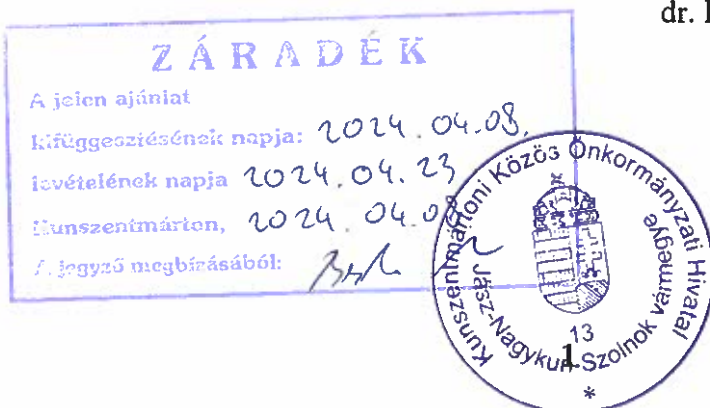 dr.
ZÁRADÉK
A jelen ajánlat
kifüggesztésének napja: 2024.04.08.
levételének napja 2024.04.23
Kunszentmárton, 2024.04.0
A jegyző megbízásából:
Kunszentmártoni Közös Önkormányzati Hivatal
Jász-Nagykun-Szolnok vármegye
13
1
*